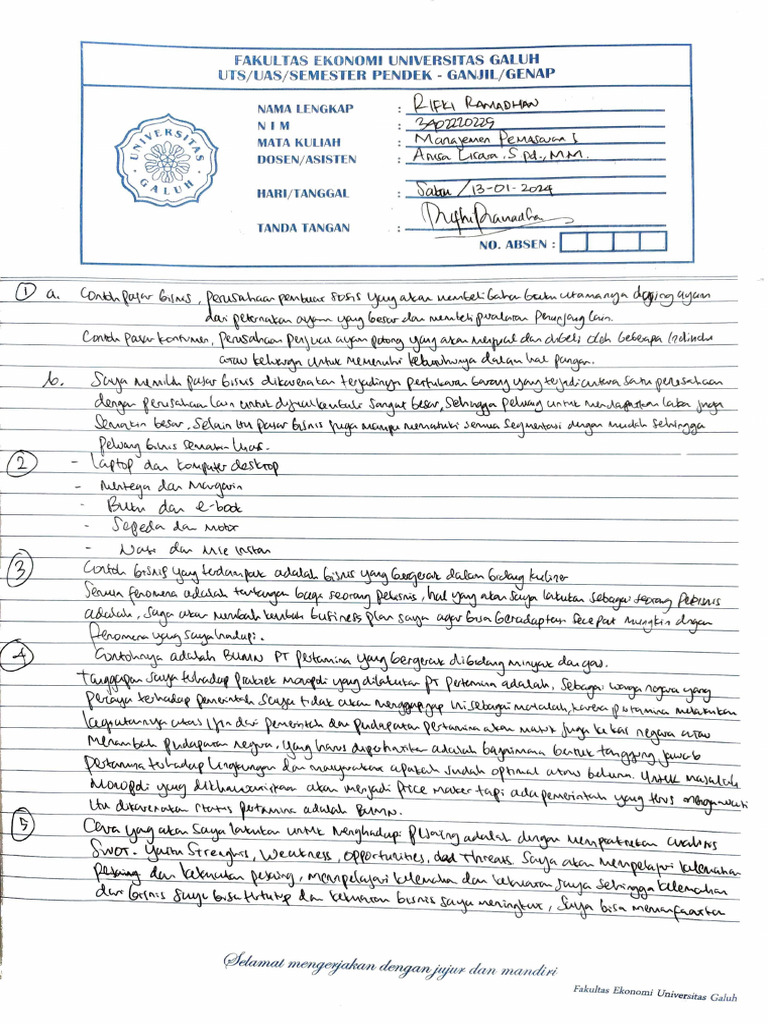 FAKULTAS EKONOMI UNIVERSITAS GALUH
UTS/UAS/SEMESTER PENDEK - GANJIL/GENAP
UNIVERSITAS GALUH
NAMA LENGKAP : RIFKI RAMADHAN
N I M : 3402220229
MATA KULIAH : Manajemen Pemasaran I
DOSEN/ASISTEN : Anisa Lisara, S Pd., M.M.
HARI/TANGGAL : Sabtu / 13-01-2024
TANDA TANGAN : Rifki Ramadha
NO. ABSEN :
1 a. Contoh pasar bisnis, perusahaan pembuat sosis yang akan membeli bahan baku utamanya daging ayam
dari peternakan ayam yang besar dan membeli peralatan penunjang lain.
Contoh pasar konsumen, perusahaan penjual ayam potong yang akan menjual dan dibeli oleh beberapa individu
atau keluarga untuk memenuhi kebutuhnya dalam hal pangan.
b. Saya memilih pasar bisnis dikarenakan terjadinya pertukaran barang yang terjadi antara satu perusahaan
dengan perusahaan lain untuk dijual kembali sangat besar, sehingga peluang untuk mendapatkan laba juga
semakin besar. Selain itu pasar bisnis juga mampu mematuki semua segmentasi dengan mudah sehingga
peluang bisnis semakin luas.
2 - Laptop dan komputer desktop
- Mentega dan Margarin
- Buku dan e-book
- Sepeda dan motor
- Nasi dan Mie instan
3 Contoh bisnis yang terdampak adalah bisnis yang bergerak dalam bidang kuliner
Semua fenomena adalah tantangan bagi seorang pebisnis, hal yang akan saya lakukan sebagai seorang pebisnis
adalah, saya akan merubah kembali business plan saya agar bisa beradaptasi secepat mungkin dengan
fenomena yang saya hadapi.
4 Contohnya adalah BUMN PT pertamina yang bergerak dibidang minyak dan gas.
Tanggapan saya terhadap praktek monopoli yang dilakukan PT pertamina adalah, sebagai warga negara yang
percaya terhadap pemerintah saya tidak akan menganggap ini sebagai masalah, karena pertamina melakukan
kegiatannya atas izin dari pemerintah dan pendapatan pertamina akan masuk juga ke kas negara atau
menambah pendapatan negara. Yang harus diperhatikan adalah bagaimana bentuk tanggung jawab
pertamina terhadap lingkungan dan masyarakat apakah sudah optimal atau belum. Untuk masalah
Monopoli yang dikhawatirkan akan menjadi price maker tapi ada pemerintah yang terus mengawasi
itu dikarenakan status pertamina adalah BUMN.
5 Cara yang akan saya lakukan untuk menghadapi pesaing adalah dengan mempraktekan analisis
SWOT. Yaitu Strenghts, Weakness, Opportunities, dad Threats. Saya akan mempelajari kelemahan
pesaing dan kekuatan pesaing, mempelajari kelemahan dan kekuatan saya sehingga kelemahan
dari bisnis saya bisa tertutup dan kekuatan bisnis saya meningkat, saya bisa memanfaatkan
Selamat mengerjakan dengan jujur dan mandiri
Fakultas Ekonomi Universitas Galuh